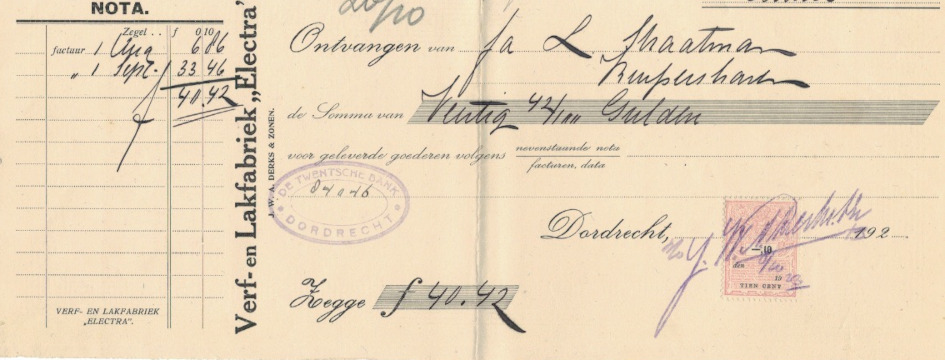 NOTA.
Zegel . . f 0 10
factuur 1 Aug 6 86
„ 1 Sept. 33 46
40.42
VERF- EN LAKFABRIEK
„ELECTRA”.
Verf- en Lakfabriek „Electra”
J. W. A. DERKS & ZONEN.
Ontvangen van fa L. Straatman
de Somma van Veertig 42/100 Gulden
voor geleverde goederen volgens nevenstaande nota
facturen, data
DE TWENTSCHE BANK
DORDRECHT
Dordrecht, 192
10
TIEN CENT
Zegge f 40.42